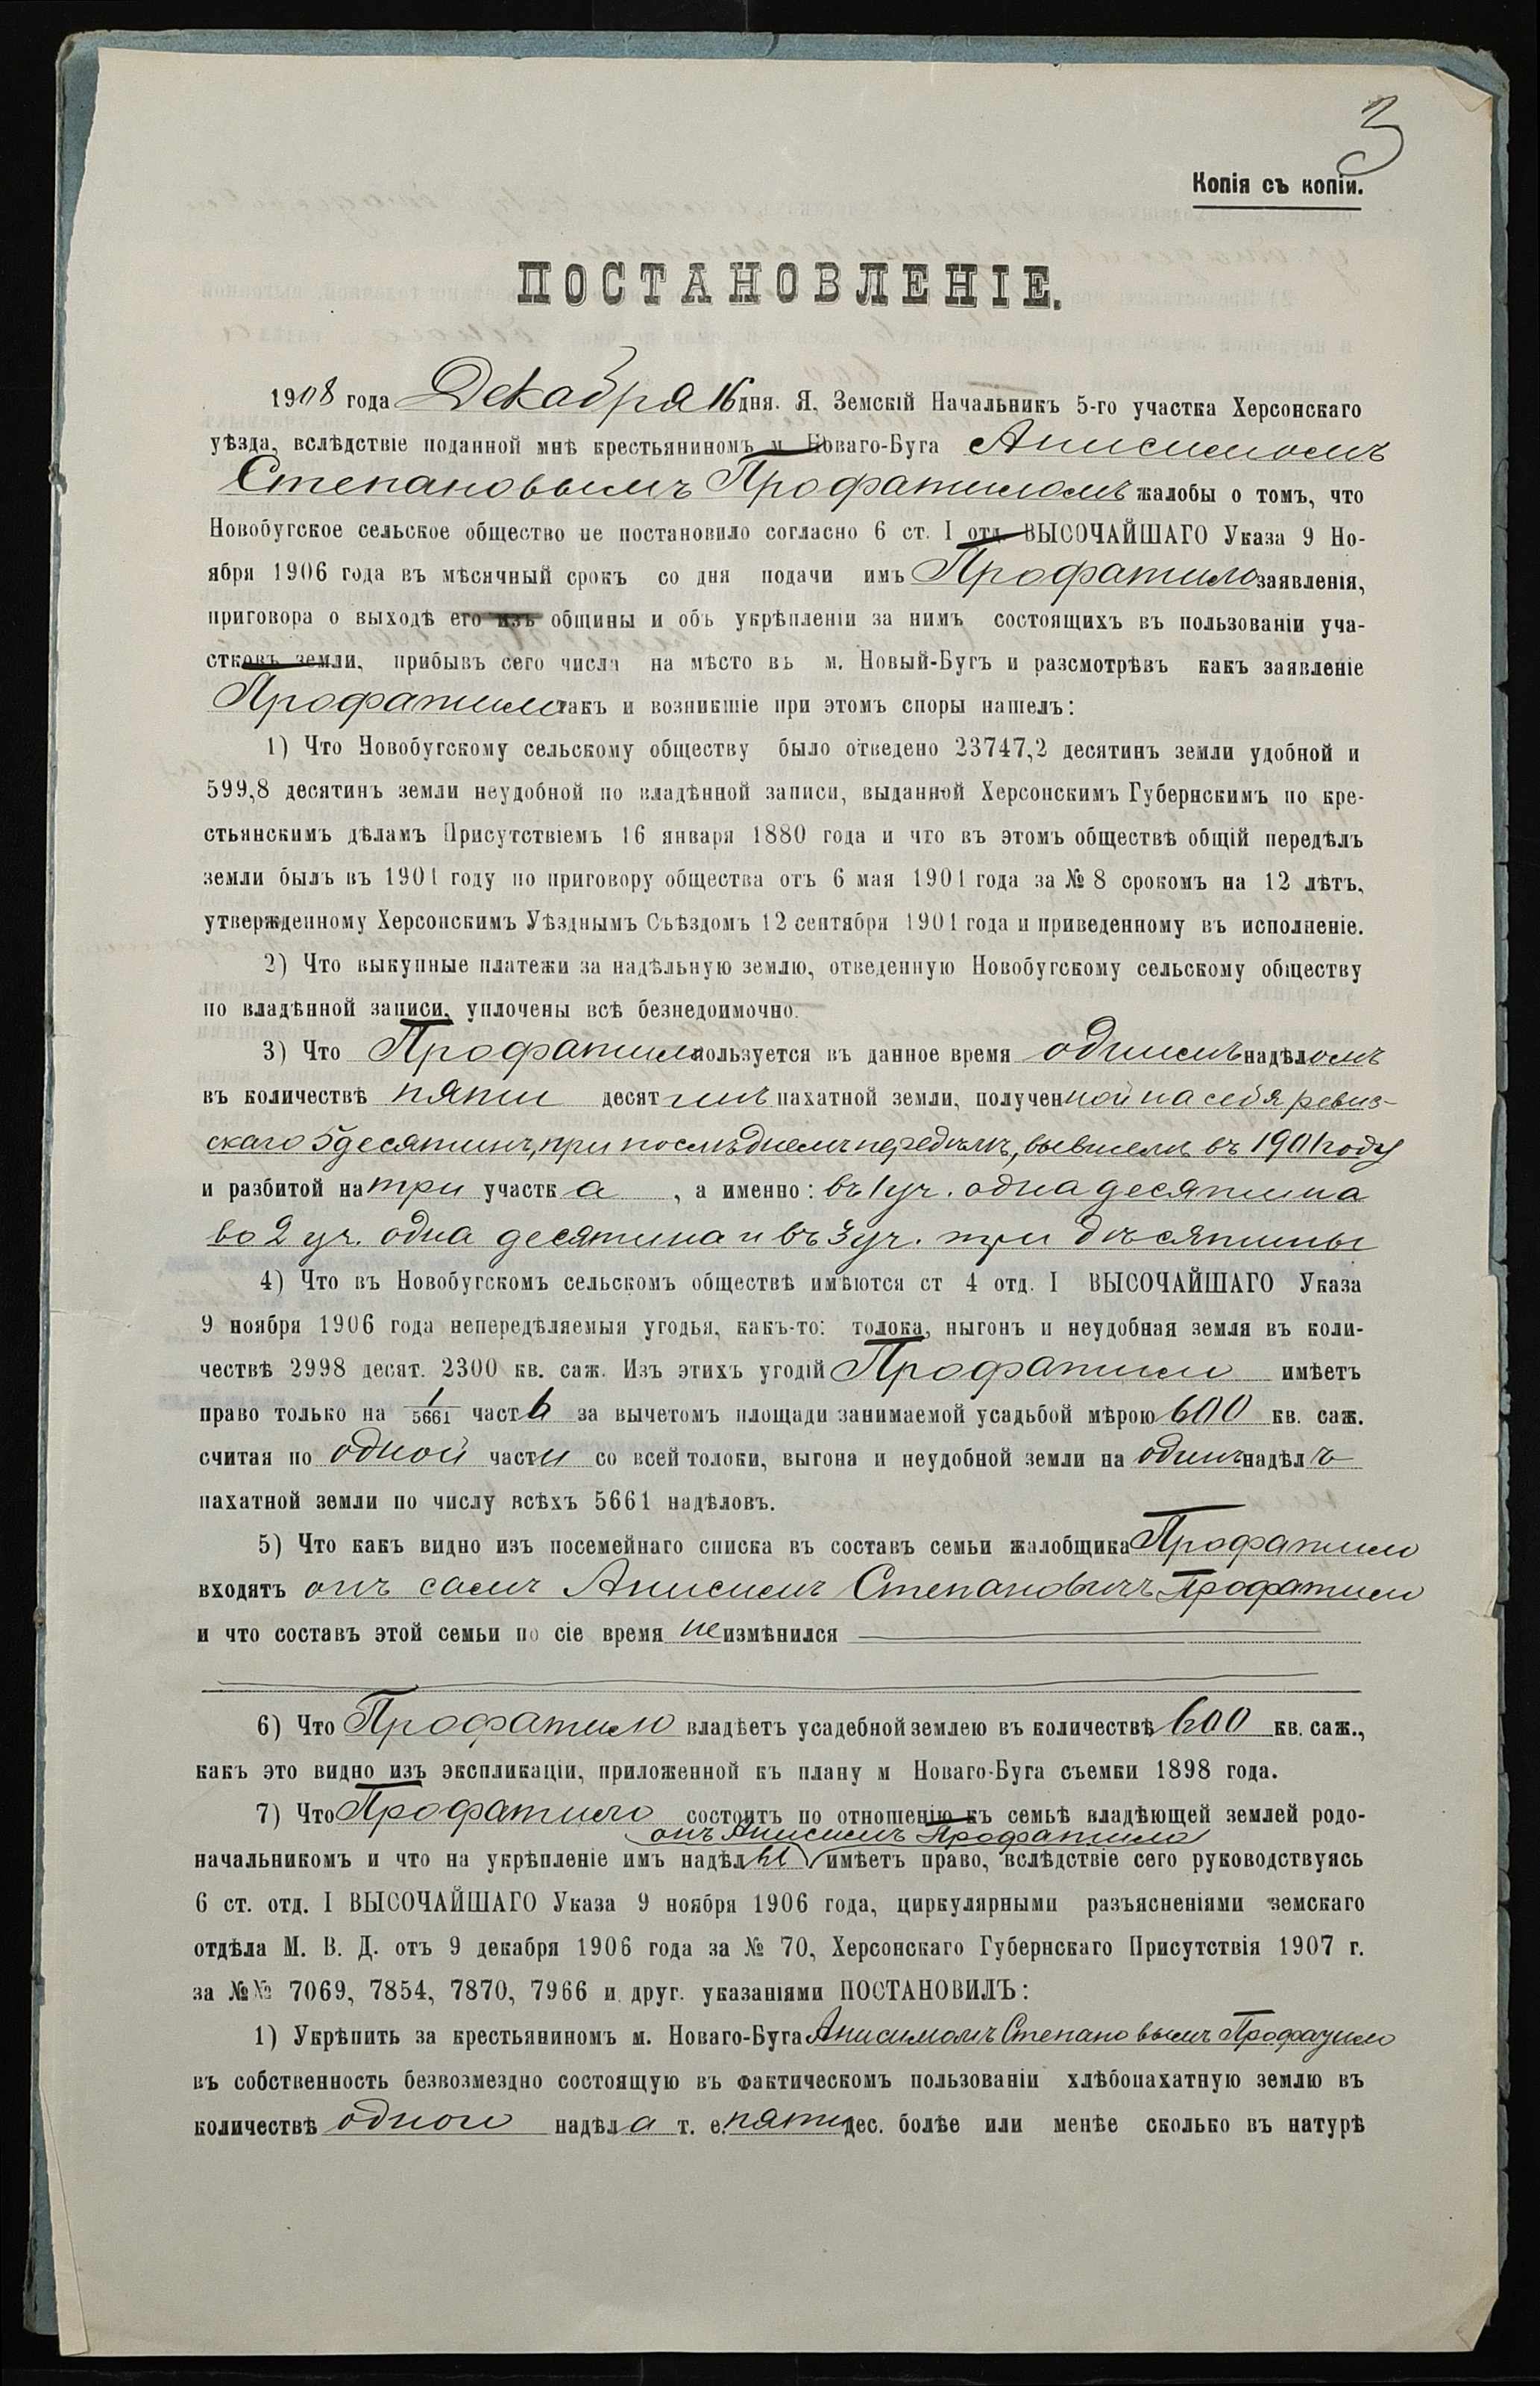 3
Копія съ копіи.
ПОСТАНОВЛЕНІЕ.
1908 года Декабря 16 дня. Я, Земскій Начальникъ 5-го участка Херсонскаго
уѣзда, вслѣдствіе поданной мнѣ крестьяниномъ м. Новаго-Буга Анисимомъ
Степановымъ Профатиломъ жалобы о томъ, что
Новобугское сельское общество не постановило согласно 6 ст. I отд. ВЫСОЧАЙШАГО Указа 9 Но-
ября 1906 года въ мѣсячный срокъ со дня подачи имъ Профатило заявленія,
приговора о выходѣ его изъ общины и объ укрѣпленіи за нимъ состоящихъ въ пользованіи уча-
стковъ земли, прибывъ сего числа на мѣсто въ м. Новый-Бугъ и разсмотрѣвъ какъ заявленіе
Профатило такъ и возникшіе при этомъ споры нашелъ:
1) Что Новобугскому сельскому обществу было отведено 23747,2 десятинъ земли удобной и
599,8 десятинъ земли неудобной по владѣнной записи, выданной Херсонскимъ Губернскимъ по кре-
стьянскимъ дѣламъ Присутствіемъ 16 января 1880 года и что въ этомъ обществѣ общій передѣлъ
земли былъ въ 1901 году по приговору общества отъ 6 мая 1901 года за № 8 срокомъ на 12 лѣтъ,
утвержденному Херсонскимъ Уѣзднымъ Съѣздомъ 12 сентября 1901 года и приведенному въ исполненіе.
2) Что выкупные платежи за надѣльную землю, отведенную Новобугскому сельскому обществу
по владѣнной записи, уплочены всѣ безнедоимочно.
3) Что Профатило пользуется въ данное время однимъ надѣломъ
въ количествѣ пяти десятинъ пахатной земли, полученной на себя ревиз-
скаго 5 десятинъ, при послѣднемъ передѣлѣ, бывшемъ въ 1901 году
и разбитой на три участка, а именно: въ 1 уч. одна десятина
во 2 уч. одна десятина и въ 3 уч. три дѣсятины
4) Что въ Новобугскомъ сельскомъ обществѣ имѣются ст 4 отд. I ВЫСОЧАЙШАГО Указа
9 ноября 1906 года непередѣляемыя угодья, какъ-то: толока, выгонъ и неудобная земля въ коли-
чествѣ 2998 десят. 2300 кв. саж. Изъ этихъ угодій Профатило имѣетъ
право только на 1/5661 часть за вычетомъ площади занимаемой усадьбой мѣрою 600 кв. саж.
считая по одной части со всей толоки, выгона и неудобной земли на одинъ надѣлъ
пахатной земли по числу всѣхъ 5661 надѣловъ.
5) Что какъ видно изъ посемейнаго списка въ составъ семьи жалобщика Профатило
входятъ онъ самъ Анисимъ Степановичъ Профатило
и что составъ этой семьи по сіе время не измѣнился
6) Что Профатило владѣетъ усадебной землею въ количествѣ 600 кв. саж.,
какъ это видно изъ экспликаціи, приложенной къ плану м Новаго-Буга съемки 1898 года.
7) Что Профатило состоитъ по отношенію къ семьѣ владѣющей землей родо-
онъ Анисимъ Профатило
начальникомъ и что на укрѣпленіе имъ надѣла имѣетъ право, вслѣдствіе сего руководствуясь
6 ст. отд. I ВЫСОЧАЙШАГО Указа 9 ноября 1906 года, циркулярными разъясненіями земскаго
отдѣла М. В. Д. отъ 9 декабря 1906 года за № 70, Херсонскаго Губернскаго Присутствія 1907 г.
за №№ 7069, 7854, 7870, 7966 и друг. указаніями ПОСТАНОВИЛЪ:
1) Укрѣпить за крестьяниномъ м. Новаго-Буга Анисимомъ Степановымъ Профатило
въ собственность безвозмездно состоящую въ фактическомъ пользованіи хлѣбопахатную землю въ
количествѣ одного надѣла т. е. пяти дес. болѣе или менѣе сколько въ натурѣ